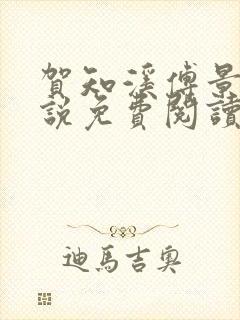 賀知溪傅景
說免費閱讀
迪馬吉奧